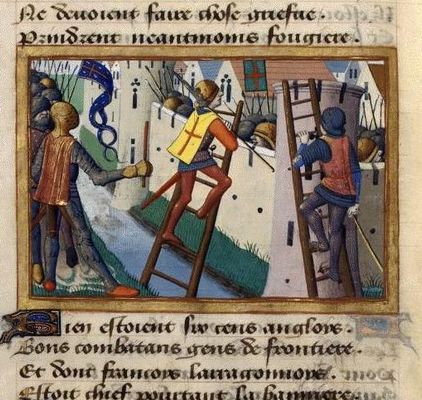 Ne devoient faire chose griefue.
Prindrent neantmoins fougiere.
Bien estoient six cens anglois.
Bons combatans gens de frontiere.
Et dont francois larragonnois.
Estoit chief pourtant la banniere.